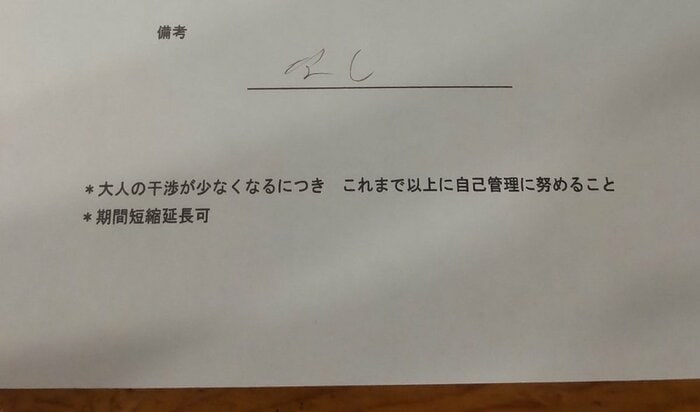 備考
なし
*大人の干渉が少なくなるにつき　これまで以上に自己管理に努めること
*期間短縮延長可